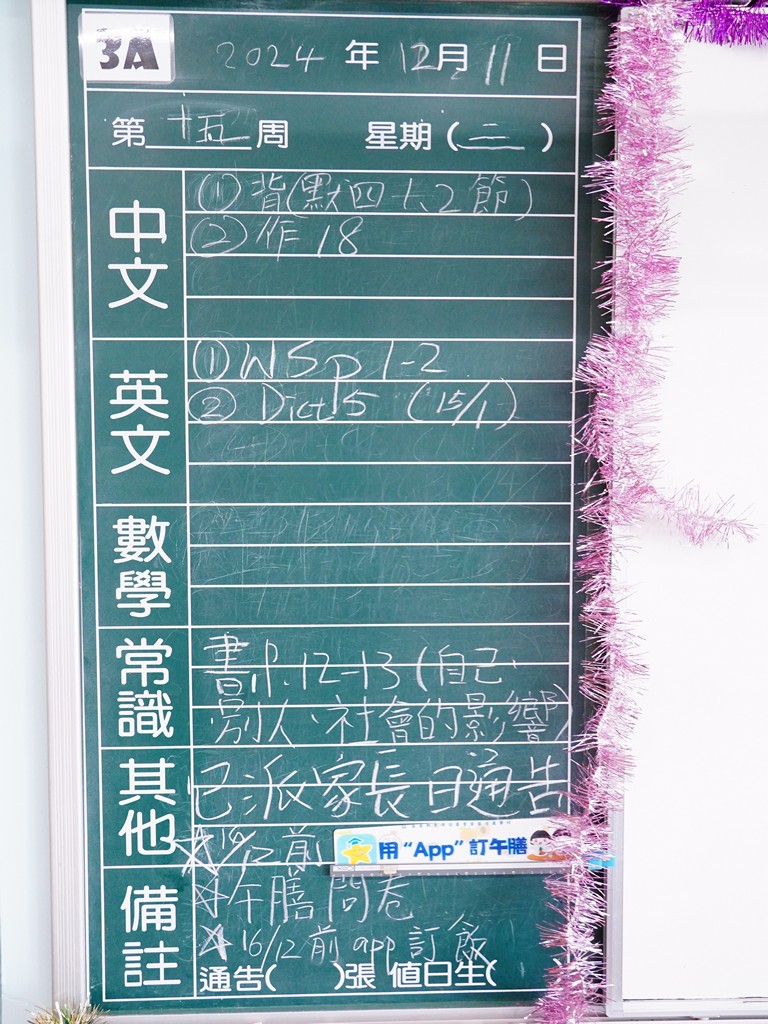 3A
2024 年 12月 11 日
第 十五 周 星期(三)
中文
① 背(默四 七 2節)
② 作 18
英文
① WS p 1-2
② Dict 5 (15/1)
數學
常識
書P.12-13(自己、
別人、社會的影響)
其他
已派家長日通告
用“App”訂午膳
備註
午膳問卷
16/12前 app 訂飯
通告( )張 值日生(